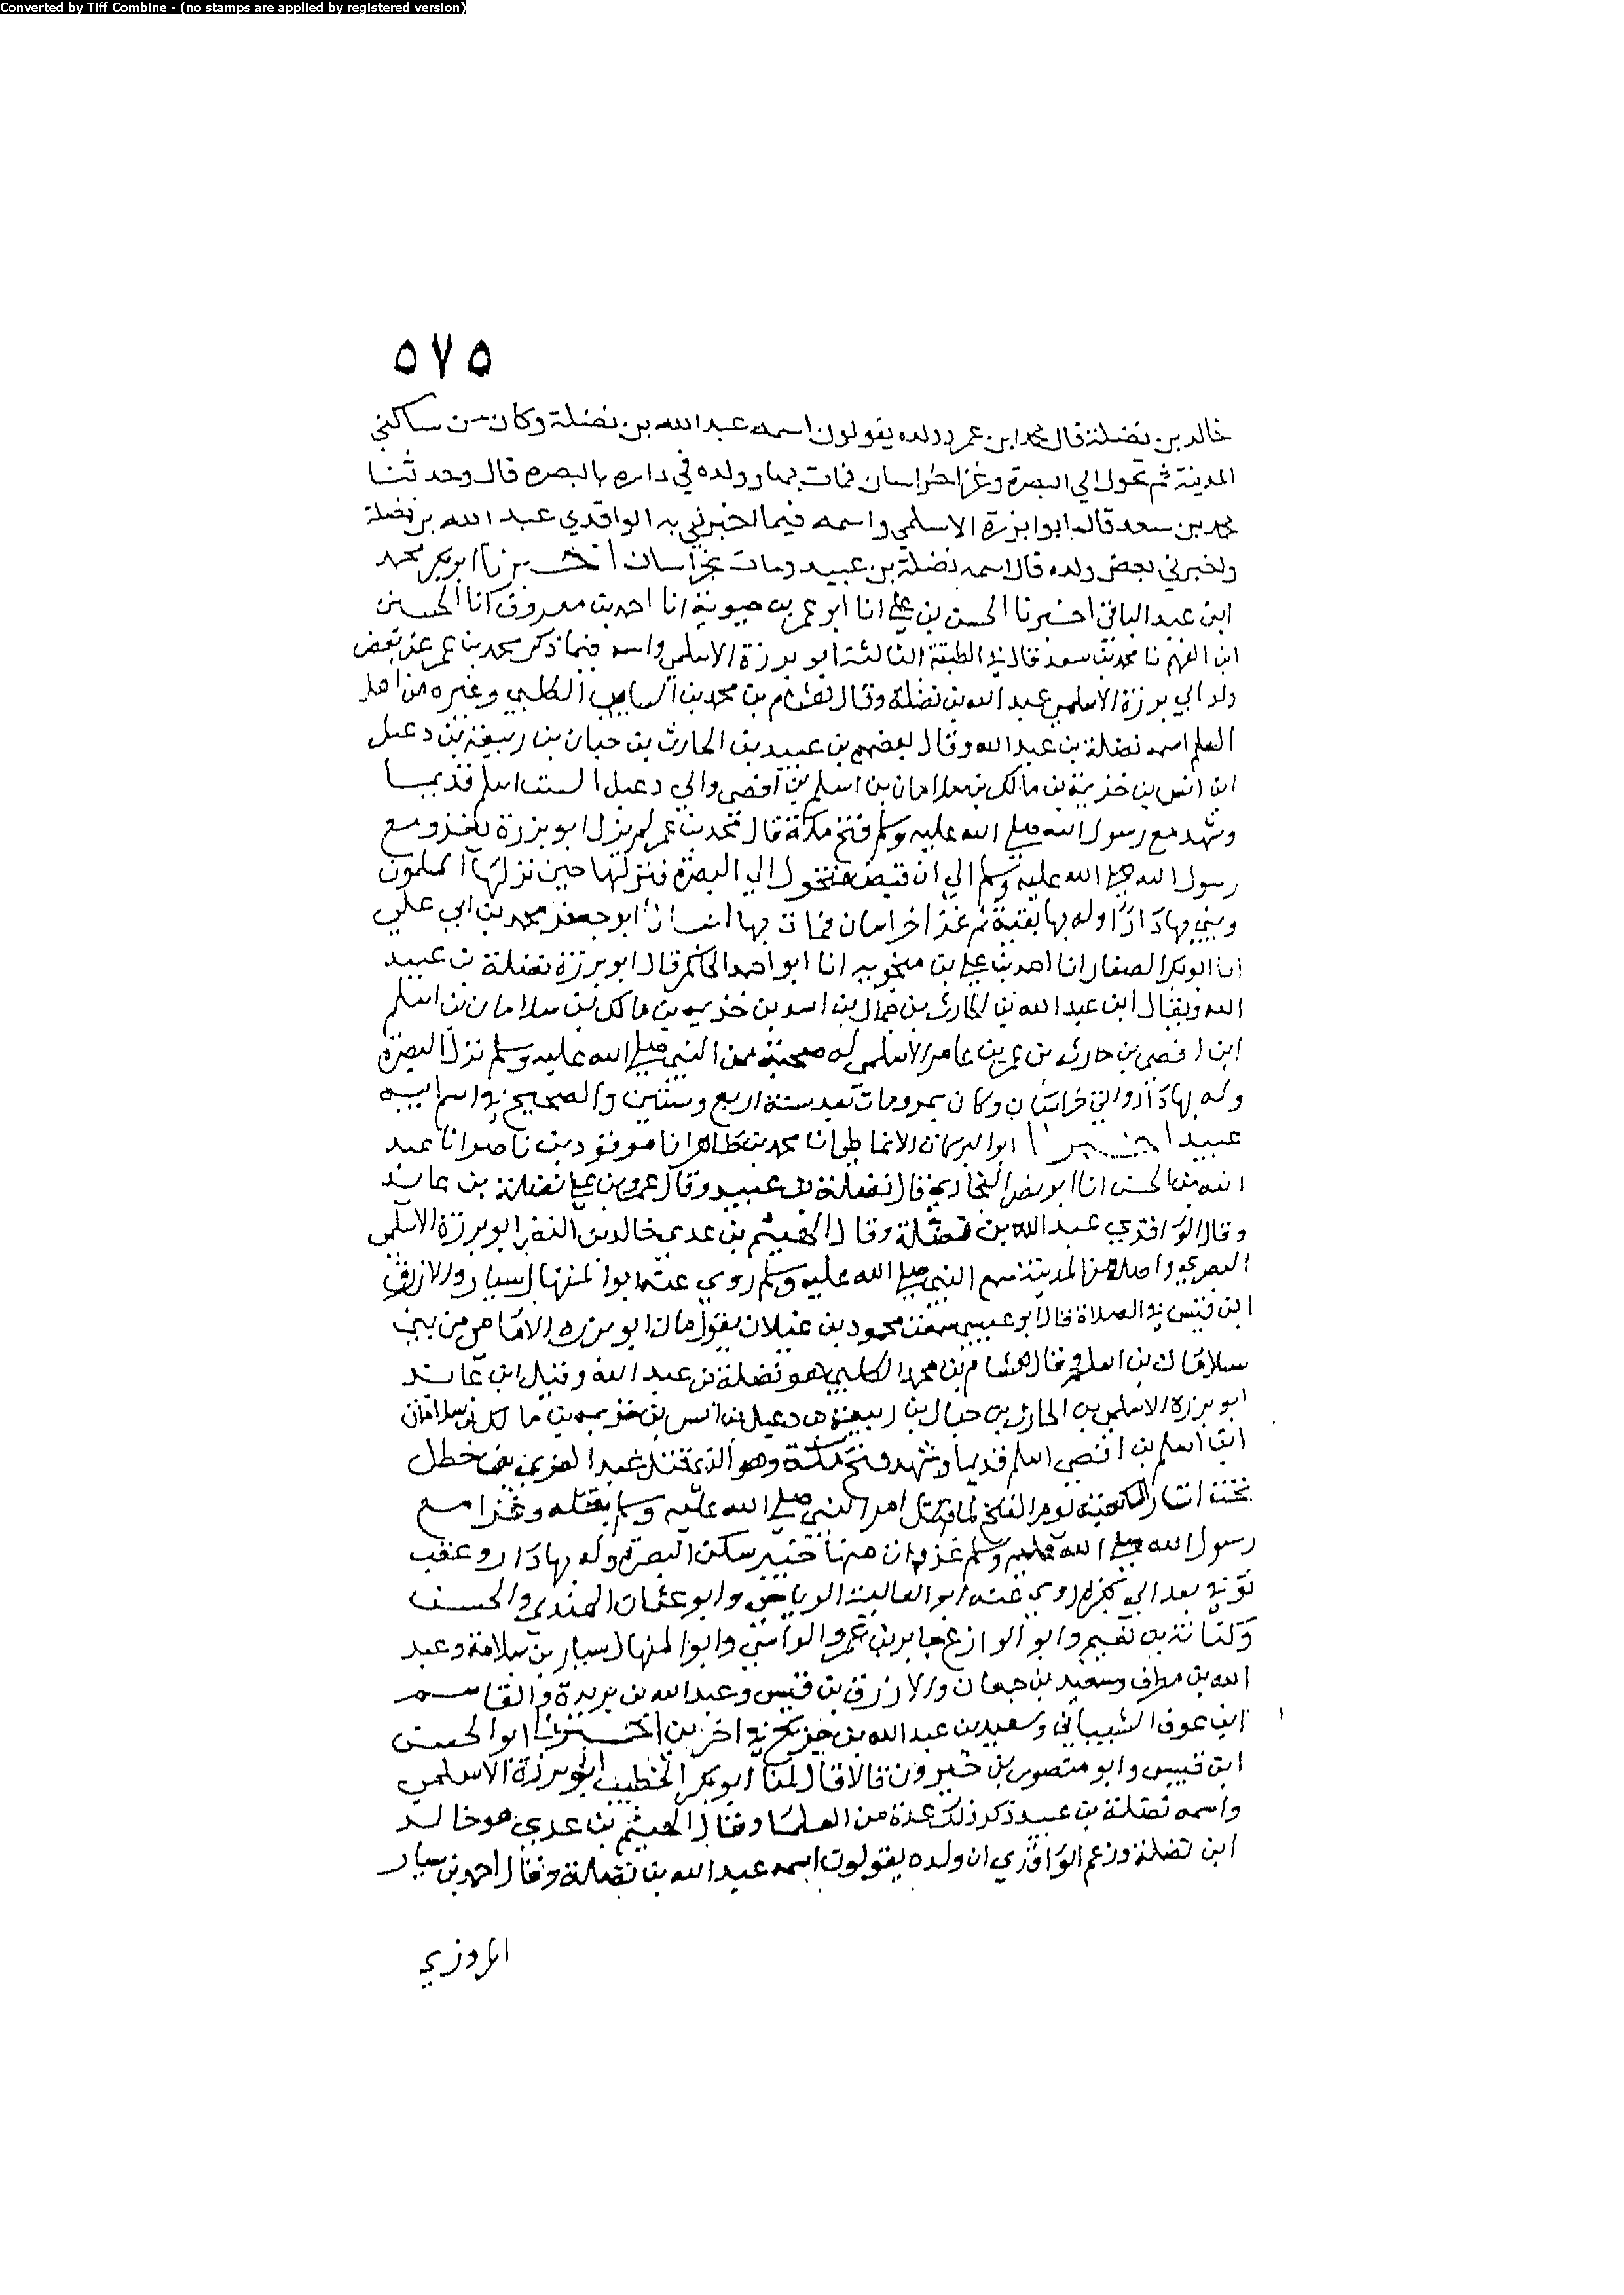 Converted by Tiff Combine - (no stamps are applied by registered version)
٥٧٥
خالد بن نضلة قال محمد ابن عمر وولده يقولون اسمه عبد الله بن نضلة وكان من ساكني
المدينة ثم تحول الي البصرة وغزا خراسان فمات بها وولده في داره بالبصره قال وحدثنا
محمد بن سعد قال ابوا برزة الاسلمي واسمه فيما اخبرني به الواقدي عبد الله بن نضلة
واخبرني بعض ولده قال اسمه نضلة بن عبيد ومات بخراسان اخبرنا ابو بكر محمد
ابن عبد الباقي اخبرنا الحسن بن علي انا ابو عمر بن حيوية انا احمد بن معروف انا الحسين
ابن الفهم نا محمد بن سعد قال في الطبقة الثالثة ابو برزة الاسلمي واسمه فيما ذكر محمد بن عمر عن بعض
ولد ابي برزة الاسلمي عبد الله بن نضلة وقال هشام بن محمد بن السايب الكلبي وغيره من اهل
العلم اسمه نضلة بن عبد الله وقال بعضهم بن عبيد بن الحارث بن حبان بن ربيعة بن دعبل
ابن انس بن خزيمة بن مالك بن سلامان بن اسلم بن افصى والي دعبل البيت اسلم قديما
وشهد مع رسول الله صلي الله عليه وسلم فتح مكة قال محمد بن عمر لم يزل ابو برزة يغزو مع
رسول الله صلي الله عليه وسلم الي ان قبض فتحول الي البصرة فنزلها حين نزلها المسلمون
وبني بها دارا وله بها بقية ثم غزا خراسان فمات بها انبانا ابو جعفر محمد بن ابي علي
انا ابو بكر الصفار انا احمد بن علي بن منجويه انا ابو احمد الحاكم قال ابو برزة نضلة بن عبيد
الله ويقال ابن عبد الله بن الحارث بن حبال بن اسد بن خزيمه بن مالك بن سلامان بن اسلم
ابن افصى بن حارثه بن عمر بن عامر الاسلمي له صحبة من النبي صلي الله عليه وسلم نزل البصرة
وله بها دار واتي خراسان وكان بمرو ومات بعد سنة اربع وستين والصحيح في اسم ابيه
عبيد اخبرنا ابوا البركات الانماطي انا محمد بن طاهر انا مسعود بن ناصر انا عبد
الله بن الحسن انا ابو نصر البخاري قال نضلة بن عبيد وقال عمرو بن علي نضلة بن عايذ
وقال الواقدي عبد الله بن نضلة وقال الهيثم بن عدي خالد بن النضر ابو برزة الاسلمي
البصري واصله من المدينة سمع النبي صلي الله عليه وسلم روي عنه ابوا المنهال سيار والازرق
ابن قيس في الصلاة قال ابو عيسي سمعت محمود بن غيلان يقول مات ابو برزه الاقاص من بني
سلامان بن اسلم وقال هشام بن محمد الكلبي هو نضلة بن عبد الله وقيل ابن عايذ
ابو برزة الاسلمي بن الحارث بن حبال بن ربيعة بن دعبل بن انس بن خزيمه بن مالك بن سلامان
ابن اسلم بن افصى اسلم قديما وشهد فتح مكة وهو الذي قتل عبد العزي بن خطل
تحت استار الكعبة يوم الفتح امر النبي صلي الله عليه وسلم بقتله وغزا مع
رسول الله صلي الله عليه وسلم غزوات منها خيبر سكن البصرة وله بها دار وعقب
روي عنه ابو العالية الرياحي وابو عثمان النهدي والحسن
وكنانة بن نعيم وابو الوازع جابر بن عمرو الراسبي وابوا المنهال سيار بن سلامة وعبد
الله بن مطرف وسعيد بن جمهان والازرق بن قيس وعبد الله بن بريدة والقاسم
ابن عوف الشيباني وسعيد بن عبد الله بن جريج في اخرين اخبرنا ابوا الحسن
ابن قبيس وابو منصور بن خيرون قالا قال لنا ابو بكر الخطيب ابو برزة الاسلمي
واسمه نضلة بن عبيد ذكر ذلك عدة من العلما وقال الهيثم بن عدي هو خالد
ابن نضلة وزعم الواقدي ان ولده يقولون اسمه عبد الله بن نضلة وقال احمد بن سيار
المروزي